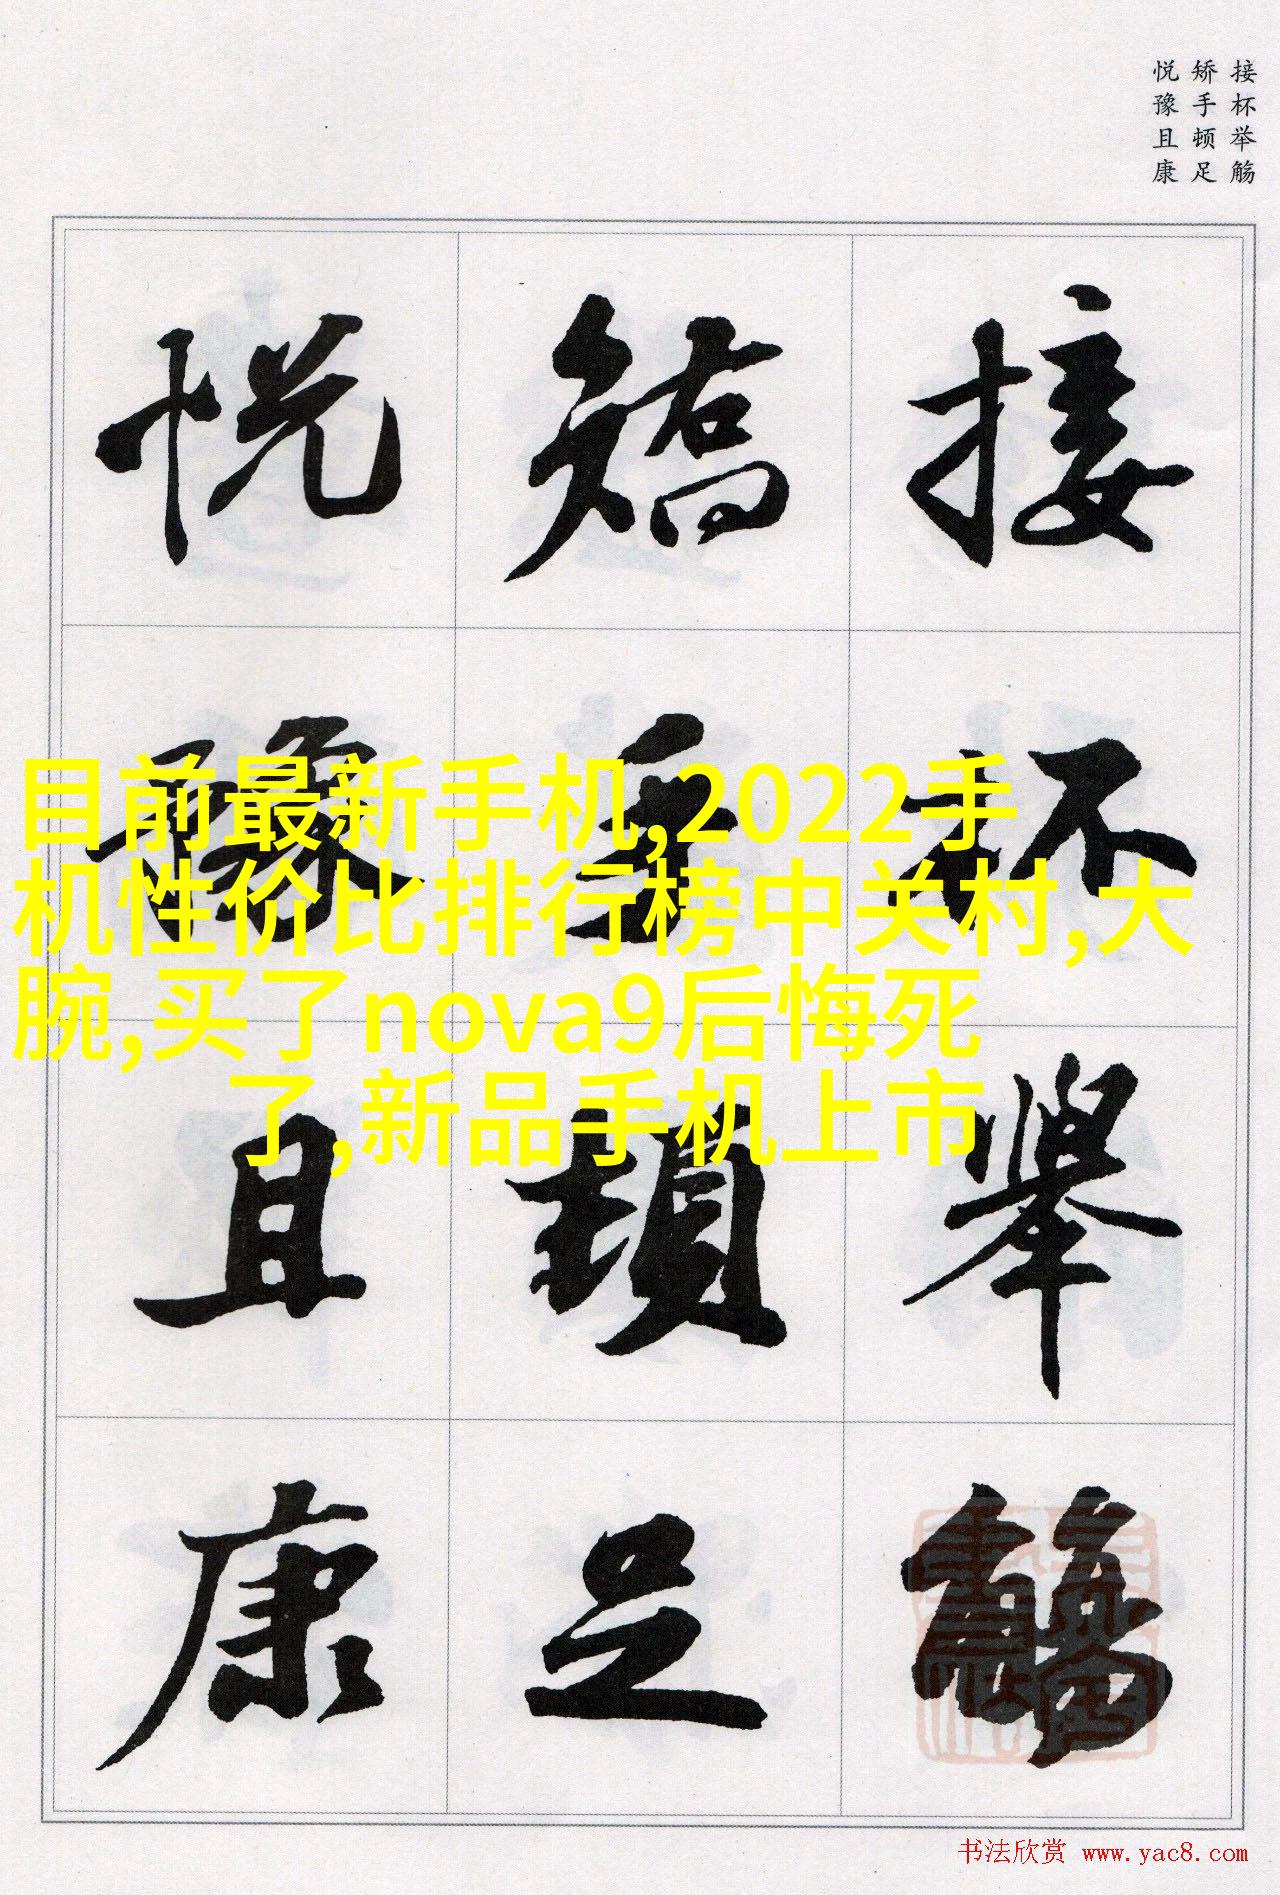 接杯举觞
矫手顿足
悦豫且康
接杯舉觴
矯手頓足
悦豫且康
目前最新手机,2022手
机性价比排行榜中关村,大
腕,买了nova9后悔死
了,新品手机上市
书法欣赏 www.yac8.com